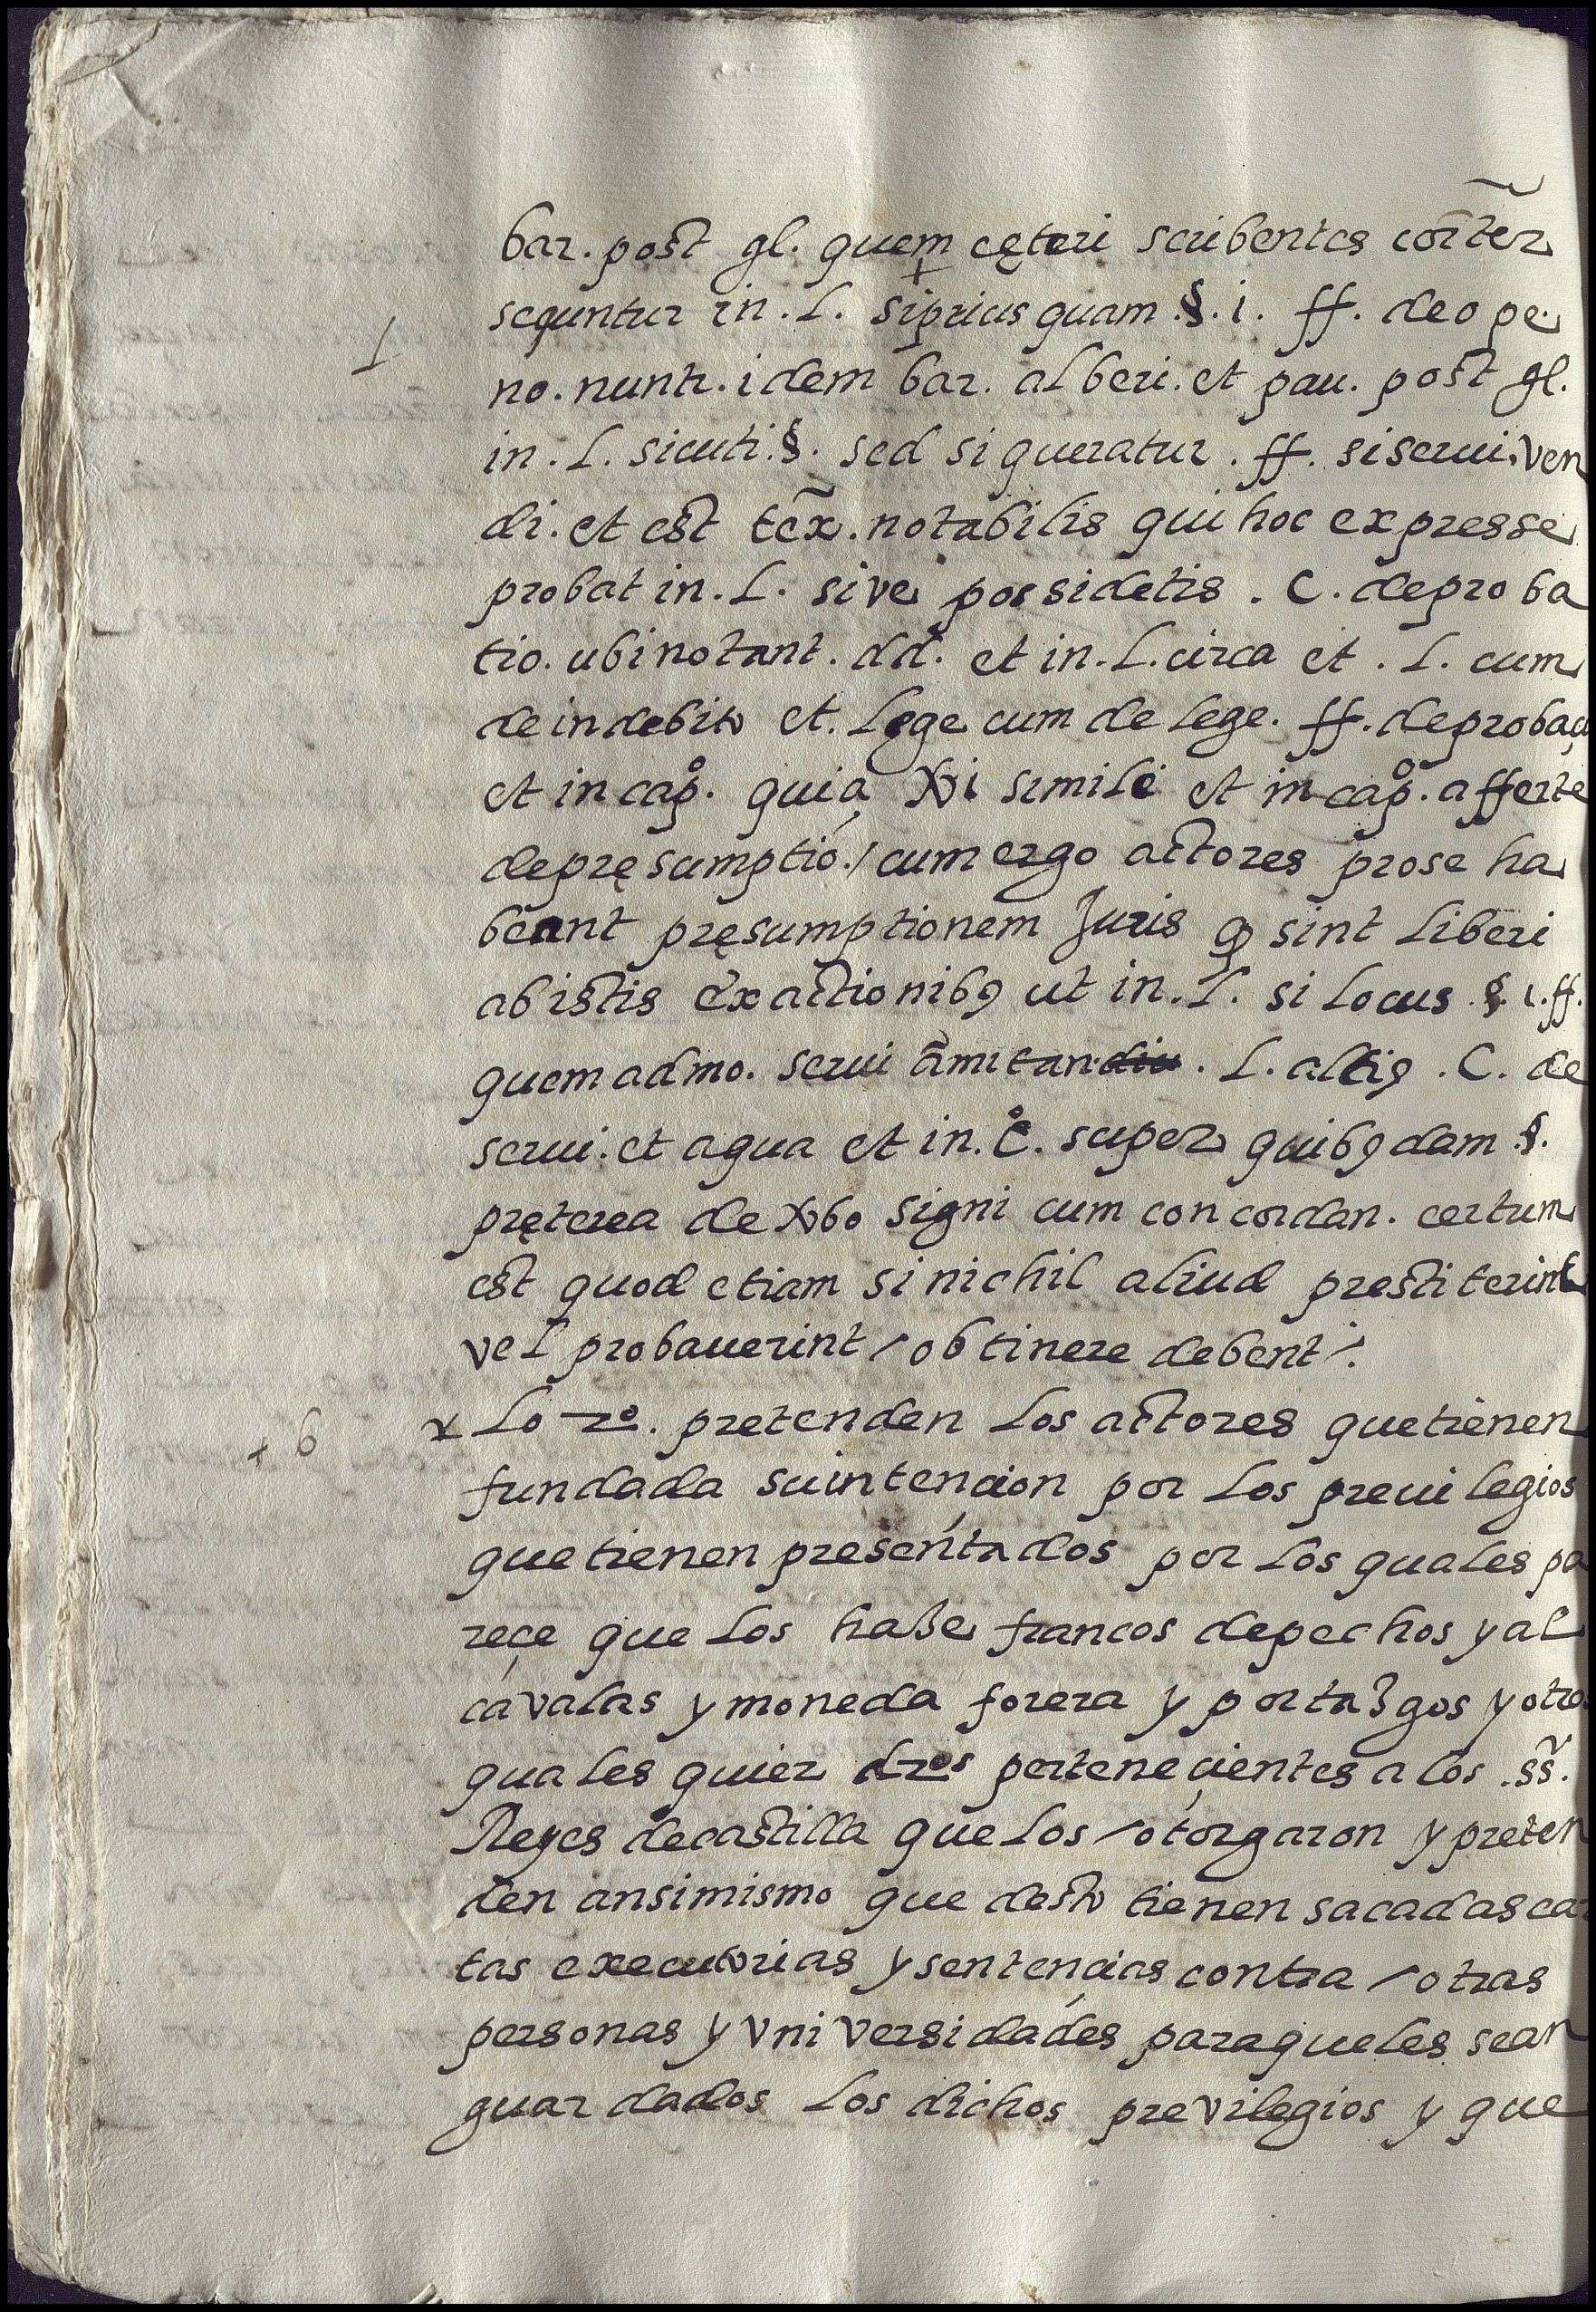 bar. post gl. quem cęteri scribentes cõr̃ter
sequntur in. l. siprius quam .§. i. ff. de o pe.
1
no. nunti. idem bar. alberi. et pau. post gl.
in. l. sicuti.§. sed si queratur. ff. si serui. ven
di. et est tex̃. notabilis qui hoc expresse
probat in. l. sive possidetis. C. de proba
tio. ubi notant. dd. et in. l. circa et. l. cum
de indebito et. lege cum de lege. ff. de probaçi
et in capº. quia Xvi simile et in capº. afferte
de pręsumptió./ cum ergo actores pro se ha
beant pręsumptionem Juris q̃ sint liberi
ab istis exactionibꝰ ut in. l. si locus §. i. ff.
quem ad mo. serui amitan diu. l. altiꝰ. C. de
serui. et aqua et in. cº. super quibꝰdam §.
pręterea de Xvbo signi cum concordan. certum
est quod etiam si nichil aliud prestiterint
vel probauerint / obtinere debent /.
+ 6
x Lo 2º. pretenden los actores que tienen
fundada su intençion por los preuilegios
que tienen presentados por los quales pa
reçe que los haze francos de pechos y al
cavalas y moneda forera y portazgos y otro
quales quier dros perteneçientes a los .ss̃.
Reyes de castilla que los / otorgaron y preten
den ansimismo que desto tienen sacadas car
tas executorias y sentençias contra / otras
personas y vniversidades para que les sean
guardados los dichos previlegios y que